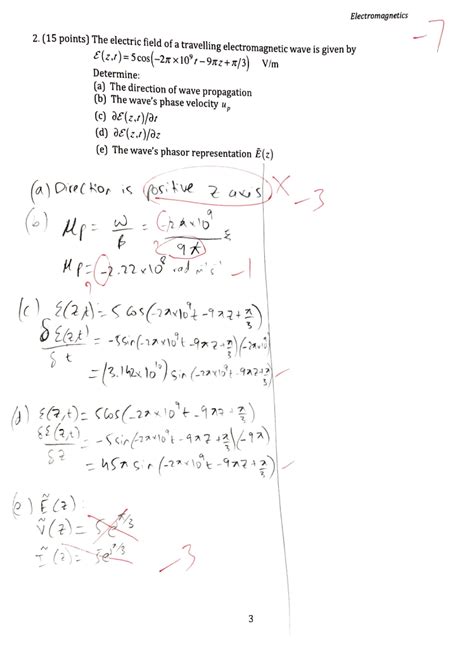 Electromagnetics
-7
2. (15 points) The electric field of a travelling electromagnetic wave is given by
ℰ(z,t) = 5cos(−2π×10⁹t − 9πz + π/3) V/m
Determine:
(a) The direction of wave propagation
(b) The wave's phase velocity uₚ
(c) ∂ℰ(z,t)/∂t
(d) ∂ℰ(z,t)/∂z
(e) The wave's phasor representation Ẽ(z)
(a) Direction is positive z axis X -3
(b) μp = ω/β = -2π×10⁹ / 9π
μp = -2.22×10⁸ rad m⁻¹ -1
(c) ℰ(z,t) = 5cos(-2π×10⁹t - 9πz + π/3)
δℰ(z,t)/δt = -5sin(-2π×10⁹t - 9πz + π/3)(-2π×10⁹)
= (3.142×10¹⁰) sin(-2π×10⁹t - 9πz + π/3)
(d) ℰ(z,t) = 5cos(-2π×10⁹t - 9πz + π/3)
δℰ(z,t)/δz = -5sin(-2π×10⁹t - 9πz + π/3)(-9π)
= 45π sin(-2π×10⁹t - 9πz + π/3)
(e) Ẽ(z):
Ṽ(z) = 5e^π/3
Ĩ(z) = 5e^π/3 -3
3